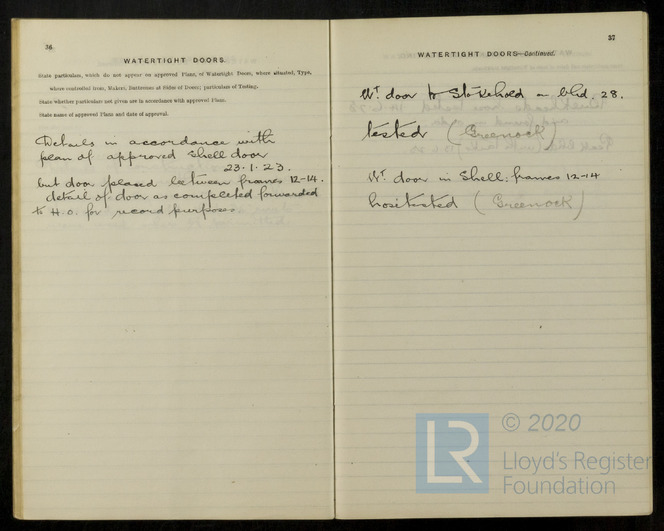 36
WATERTIGHT DOORS.
State particulars, which do not appear on approved Plans, of Watertight Doors, where situated, Type,
where controlled from, Makers, Distances of Sides of Doors; particulars of Testing.
State whether particulars not given are in accordance with approved Plans.
State name of approved Plans and date of approval.
Details in accordance with
plan of approved Shell door
23.1.23.
but door placed between frames 12-14.
detail of door as completed forwarded
to H.O. for record purposes.
37
WATERTIGHT DOORS—Continued.
WT door to Stokehold on bhd. 28.
tested (Greenock)
WT. door in Shell: frames 12-14
hose tested (Greenock)
LR
© 2020
Lloyd's Register
Foundation